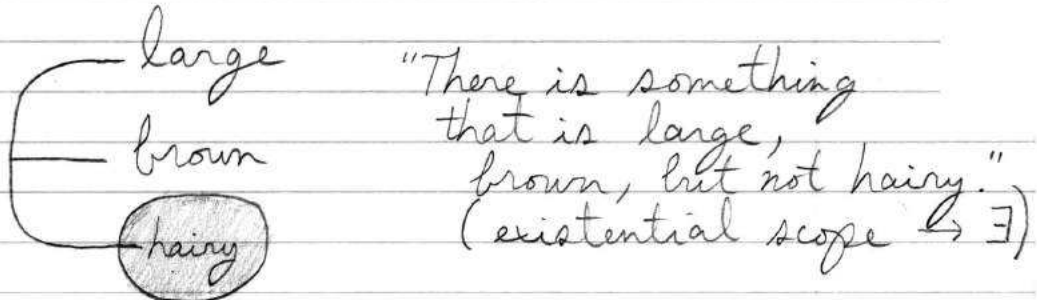 large
brown
hairy
"There is something
that is large,
brown, but not hairy."
(existential scope → ∃)